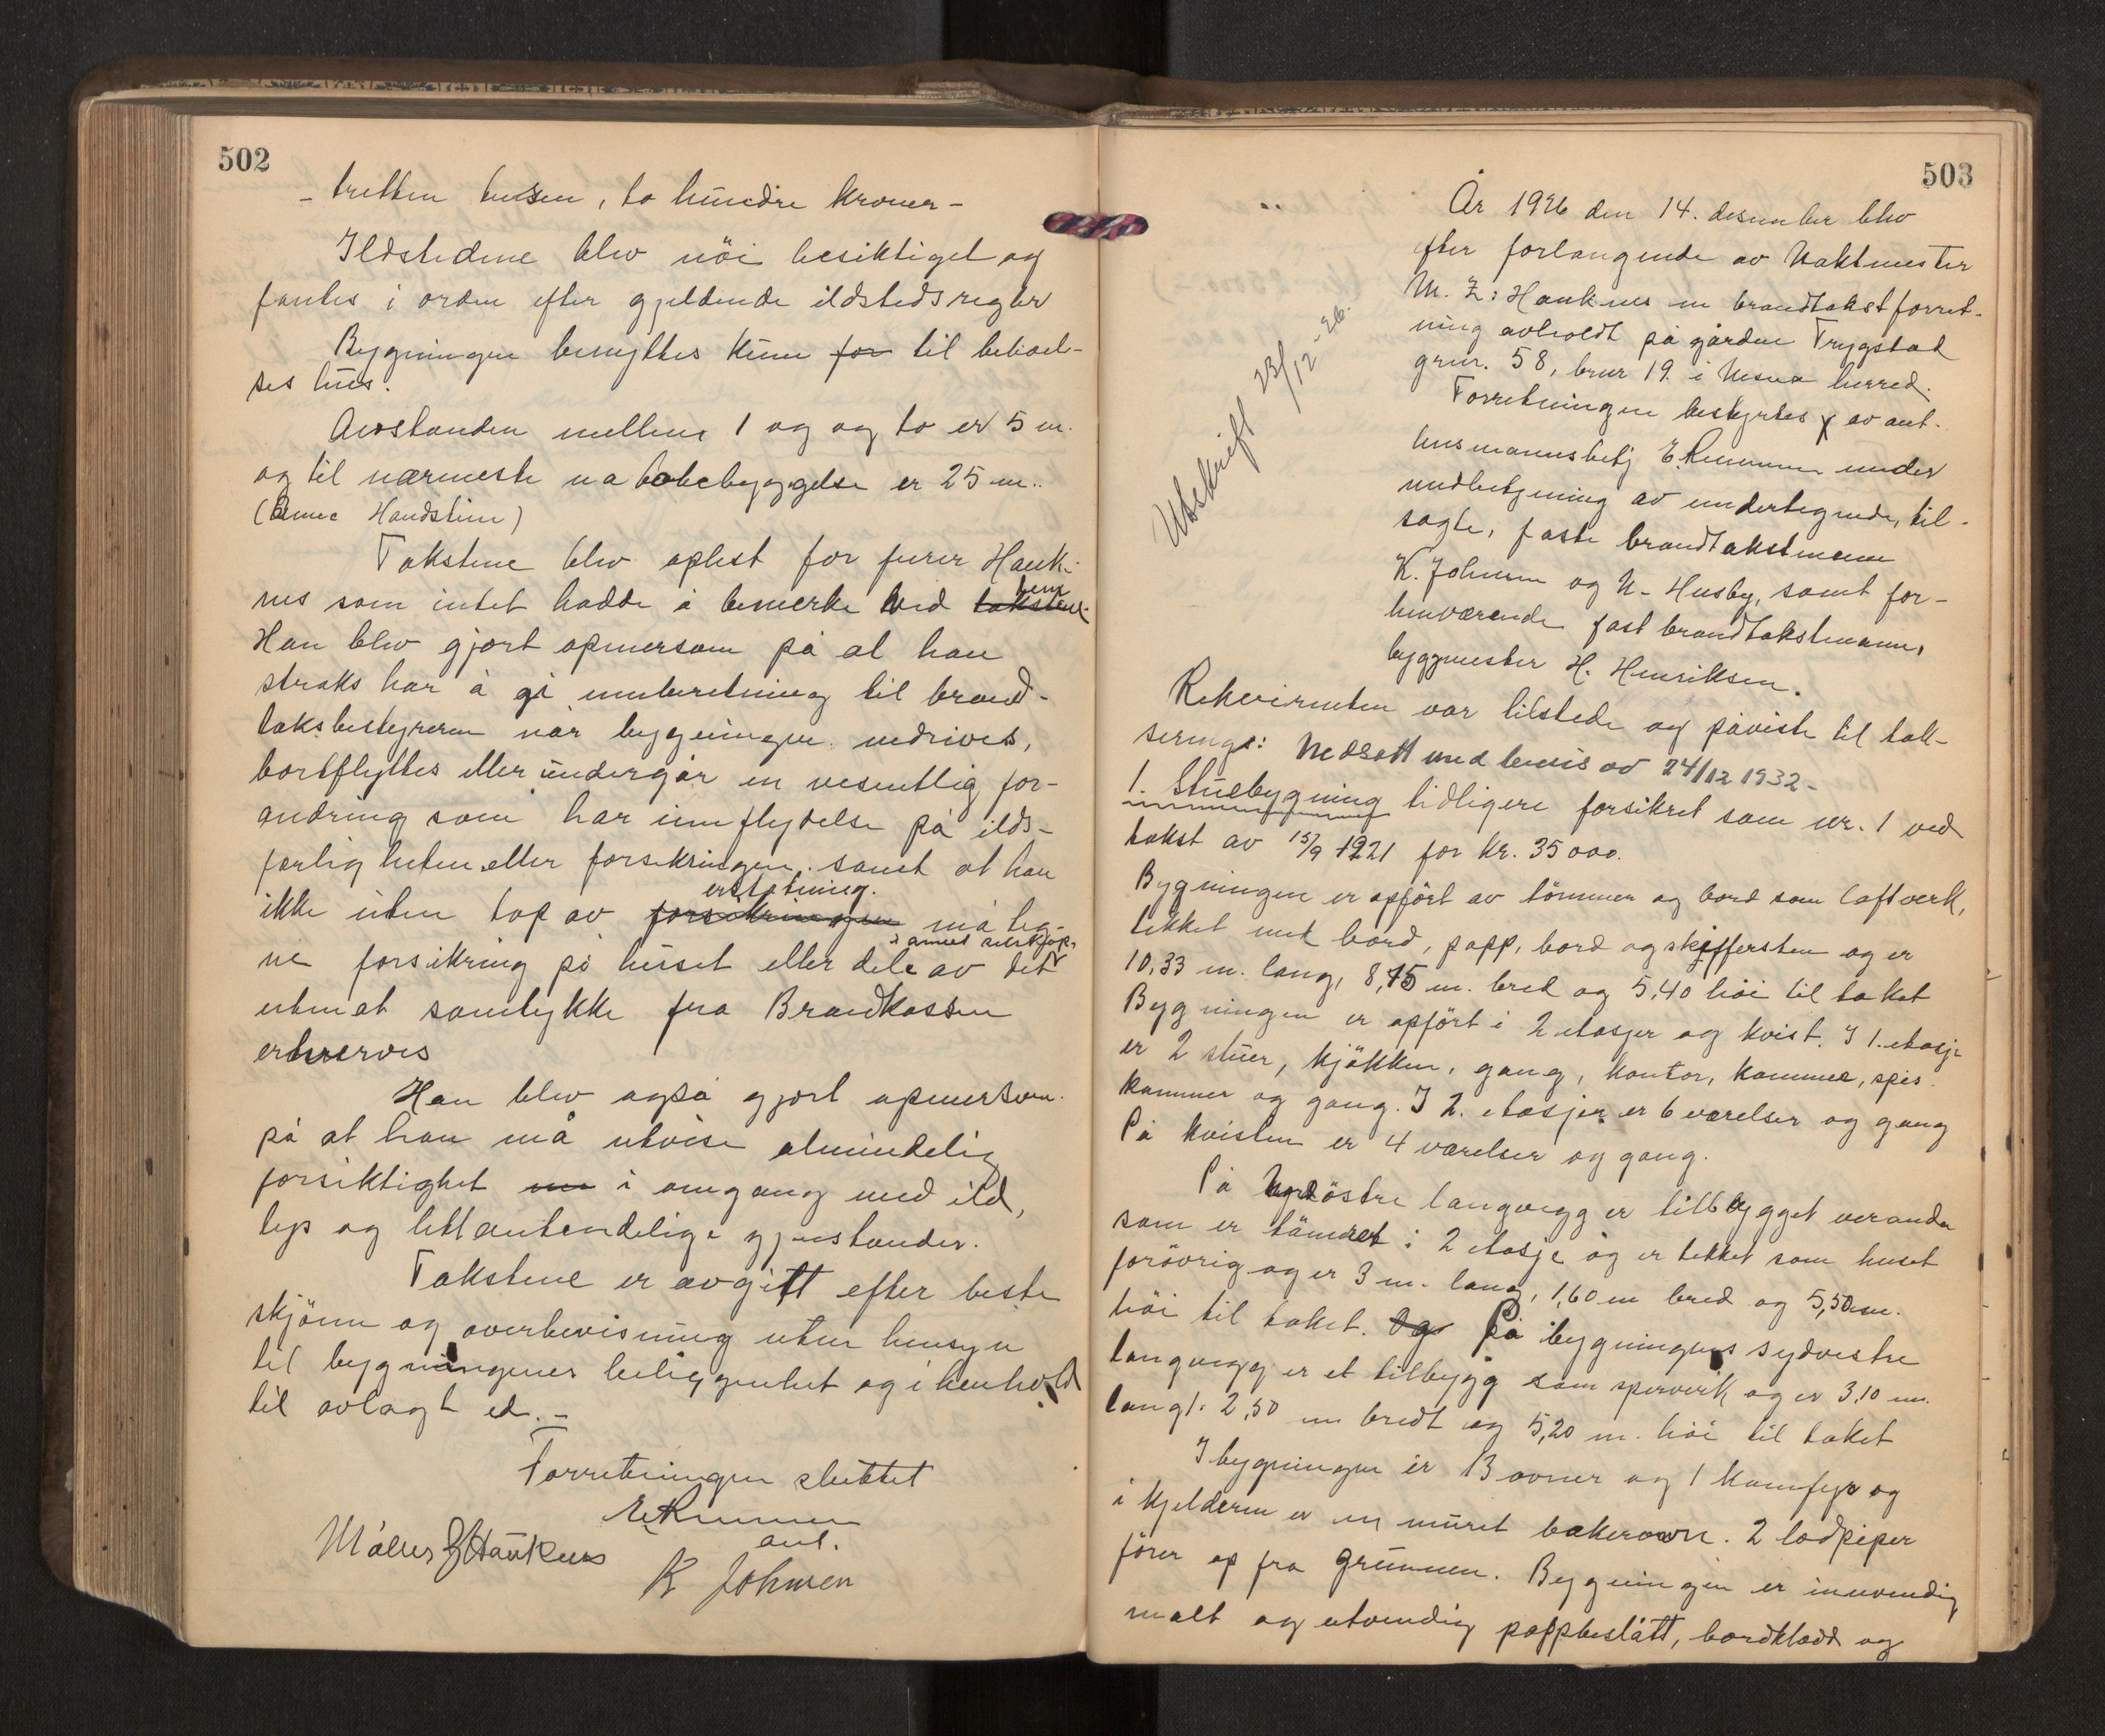 502
- tretten tusen, to hundre kroner -
Ildstedene blev nöi besiktiget og
fantes i orden efter gjeldende ildstedsregler
Bygningen benyttes kun for til beboel-
ses hus.
Avstanden mellem 1 og og to er 5 m.
og til nærmeste nabobebyggelse er 25 m..
Takstene blev oplest for furer Hauk-
nes som intet hadde å bemerke ved takstene
dem
Han blev gjort opmersom på at han
straks har å gi innberetning til brand-
taksbestyreren når bygningen nedrives,
bortflyttes eller undergår en vesentlig for-
andring som har innflydelse på ilds-
farligheten eller forsikringen. samt at han
erstatning.
ikke uten tap av forsikringen må teg-
ne forsikring på huset eller dele av det i annet selskap,
uten at samtykke fra Brandkassen
erhverves
Han blev også gjort opmersom
på at han må utvise almindelig
forsiktighet i omgang med ild,
lys og lettantendelige gjenstander.
Takstene er avgitt efter beste
skjönn og overbevisning uten hensyn
til bygningenes beliggenhet og i henhold
til avlagt ed. -
Forretningen sluttet
E. Remmen
ant.
Hauknes
K Johnsen
503
År 1926 den 14. desember blev
efter forlangende av Vaktmester
M. Z: Hauknes en brandtakstforret-
ning avholdt på gården Trygstad
grnr. 58, brnr 19. i Nesna herred.
Forretningen bestyrtes av ant.
lensmannsbetj E. Remmen under
medbetjening av undertegnede, til-
sagte, faste brandtakstmenn
K. Johnsen og N. Husby, samt for-
henværende fast brandtakstmann,
byggmester H. Henriksen.
Utskrift 23/12-26.
Rekvirenten var tilstede og påviste til tak-
sering: Nedsatt med bevis av 24/12 1932-
1. Stuebygning tidligere forsikret som nr. 1 ved
takst av 15/9 1921 for kr. 35000.
Bygningen er opfört av tömmer og bord som laftverk,
tekket med bord, papp, bord og skiffersten og er
10,33 m. lang, 8,75 m. bred og 5,40 höi til taket
Bygningen er opfört i 2 etasjer og kvist. I 1. etasje
er 2 stuer, kjökken, gang, kontor, kammer, spis-
kammer og gang. I 2. etasjer er 6 værelser og gang
På kvisten er 4 værelser og gang.
På nordöstre langvegg er tilbygget veranda
som er tömret i 2 etasje og er tekket som huset
forövrig og er 3 m. lang, 1,60 m bred og 5,50 m.
höi til taket. Og På bygningens sydvestre
langvegg er et tilbygg som sperverk og er 3,10 m.
langt. 2,50 m bredt og 5,20 m. höi til taket
I bygningen er 13 ovner og 1 komfyr og
i kjelderen er en muret bakerovn. 2 lodpiper
förer op fra grunnen. Bygningen er innvendig
malt og utvendig pappbeslått, bordkladd og